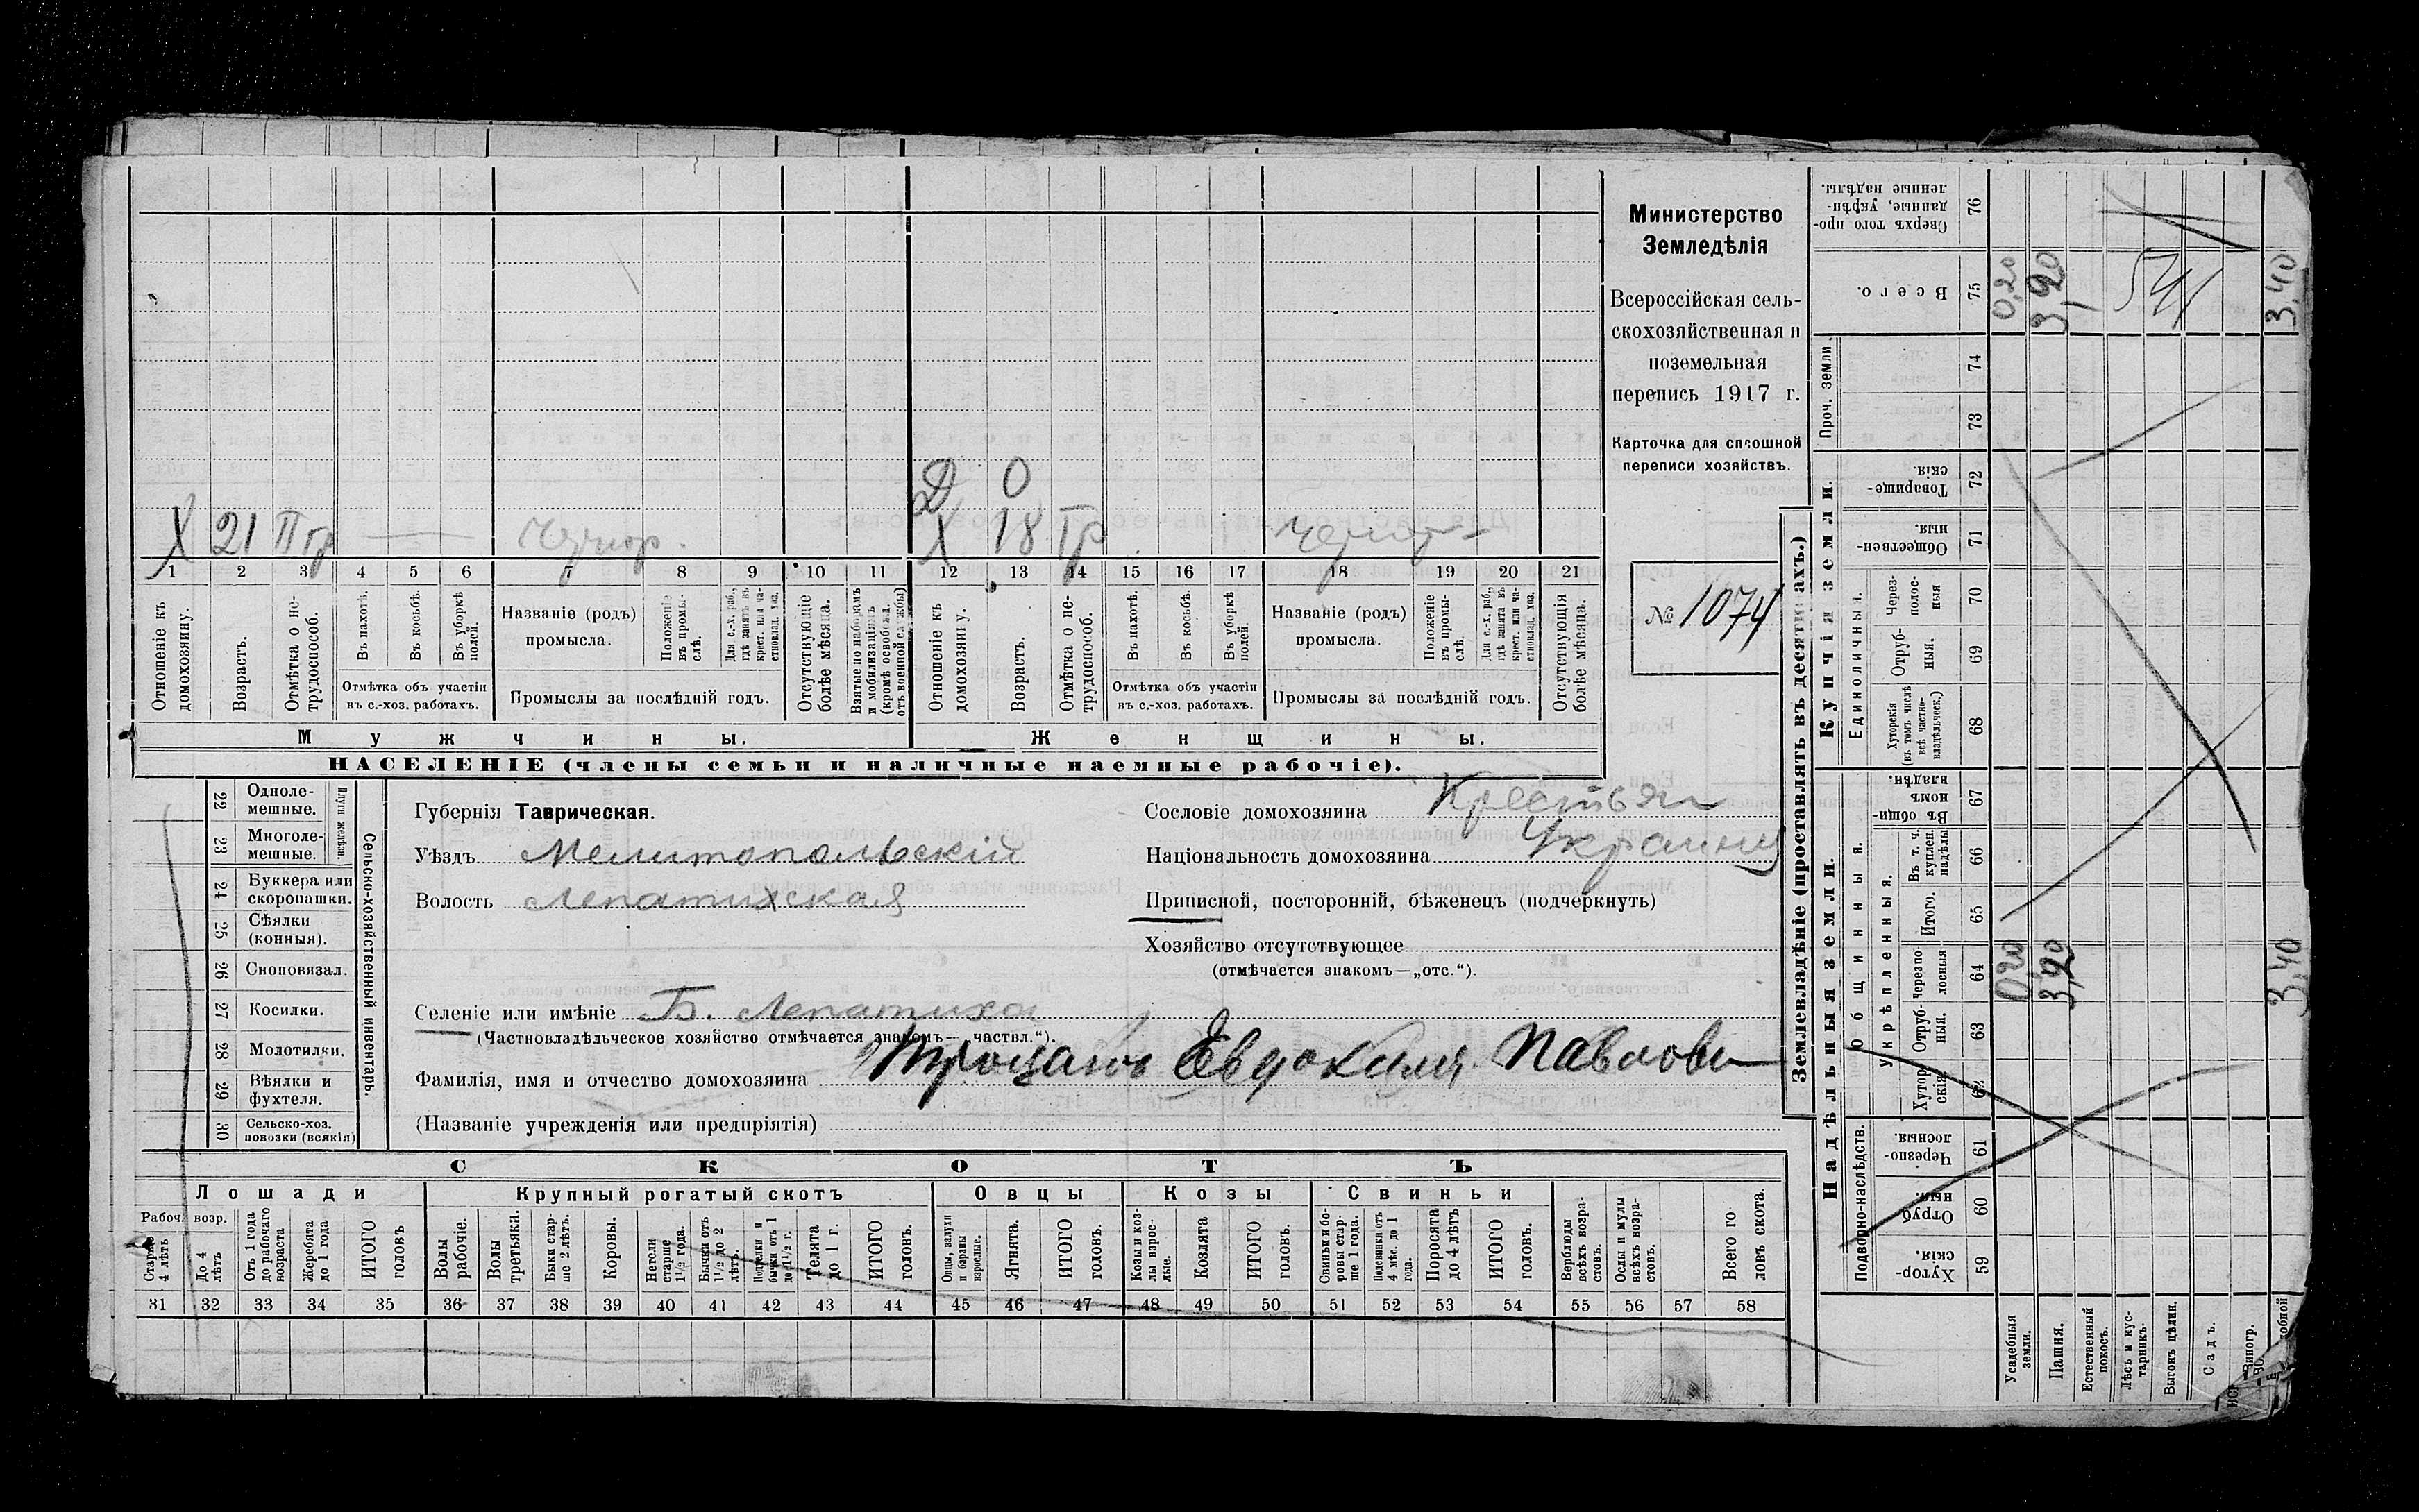 Д 0
X 21 II гр — Чернор. X 18 Гр Чернор
1 2 3 4 5 6 7 8 9 10 11 12 13 14 15 16 17 18 19 20 21
Отношеніе къ домохозяину.
Возрастъ.
Отмѣтка о нетрудоспособ.
Въ пахотѣ.
Въ косьбѣ.
Въ уборкѣ полей.
Отмѣтка объ участіи
въ с.-хоз. работахъ.
Названіе (родъ)
промысла.
Положеніе въ промыслѣ.
Для с.-х. раб., гдѣ занятъ въ крест. или частновлад. хоз.
Промыслы за послѣдній годъ.
Отсутствующіе болѣе мѣсяца.
Взятые по наборамъ и мобилизаціямъ (кромѣ освобожд. отъ военной службы)
Отношеніе къ домохозяину.
Возрастъ.
Отмѣтка о нетрудоспособ.
Въ пахотѣ.
Въ косьбѣ.
Въ уборкѣ полей.
Отмѣтка объ участіи
въ с.-хоз. работахъ.
Названіе (родъ)
промысла.
Положеніе въ промыслѣ.
Для с.-х. раб., гдѣ занята въ крест. или частновлад. хоз.
Промыслы за послѣдній годъ.
Отсутствующія болѣе мѣсяца.
Мужчины.
Женщины.
НАСЕЛЕНІЕ (члены семьи и наличные наемные рабочіе).
Министерство
Земледѣлія
Всероссійская сель-
скохозяйственная и
поземельная
перепись 1917 г.
Карточка для сплошной
переписи хозяйствъ.
№ 1074
Сельско-хозяйственный инвентарь.
Плуги желѣзн.
22 Одноле-
мешные.
23 Многоле-
мешные.
24 Буккера или
скоропашки.
25 Сѣялки
(конныя).
26 Сноповязал.
27 Косилки.
28 Молотилки.
29 Вѣялки и
фухтеля.
30 Сельско-хоз.
повозки (всякія)
Губернія Таврическая.
Уѣздъ Мелитопольскій
Волость Лепатихская
Селеніе или имѣніе Б. Лепатиха
(Частновладѣльческое хозяйство отмѣчается знакомъ—„частвл.“).
Сословіе домохозяина Крестьян
Національность домохозяина Украинц
Приписной, посторонній, бѣженецъ (подчеркнуть)
Хозяйство отсутствующее
(отмѣчается знакомъ—„отс.“).
Фамилія, имя и отчество домохозяина Троцанъ Евдокимъ Павлови
(Названіе учрежденія или предпріятія)
СКОТЪ
Лошади
Крупный рогатый скотъ
Овцы
Козы
Свиньи
Рабоч. возр.
Старше 4 лѣтъ
До 4 лѣтъ
Отъ 1 года до рабочаго возраста
Жеребята до 1 года
ИТОГО головъ
Волы рабочіе.
Волы третьяки.
Быки старше 2 лѣтъ.
Коровы.
Нетели старше 1½ года.
Бычки отъ 1½ до 2 лѣтъ.
Подтелки и бычки отъ 1 до 1½ г.
Телята до 1 г.
ИТОГО головъ.
Овцы, валухи и бараны взрослые.
Ягнята.
ИТОГО головъ.
Козы и козлы взрослые.
Козлята
ИТОГО головъ.
Свиньи и боровы старше 1 года.
Подсвинки отъ 4 мѣс. до 1 года.
Поросята до 4 лѣтъ
ИТОГО головъ.
Верблюды всѣхъ возрастовъ.
Ослы и мулы всѣхъ возрастовъ.
Всего головъ скота.
31 32 33 34 35 36 37 38 39 40 41 42 43 44 45 46 47 48 49 50 51 52 53 54 55 56 57 58
Землевладѣніе (проставлять въ десятинахъ.)
Купчія земли.
Надѣльныя земли.
Проч. земли.
Единоличныя.
Общинныя.
укрѣпленныя.
Подворно-наслѣдств.
76 Сверхъ того проданные, укрѣпленные надѣлы.
75 Всего. 0,20 3,20 541 3,40
74
73
72 Товарищескія.
71 Общественныя
70 Черезполосныя
69 Отрубныя.
68 Хуторскія (въ томъ числѣ всѣ частновладѣльческ.)
67 Въ общинномъ владѣн.
66 Въ т. ч. куплен. надѣлы
65 Итого.
64 Черезполосныя 0,20 3,20 3,40
63 Отрубныя.
62 Хуторскія.
61 Черезполосныя
60 Отрубныя.
59 Хуторскія.
Усадебныя земли.
Пашня.
Естественный покосъ.
Лѣсъ и кустарникъ.
Выгонъ цѣлин.
Садъ.
Виногр.